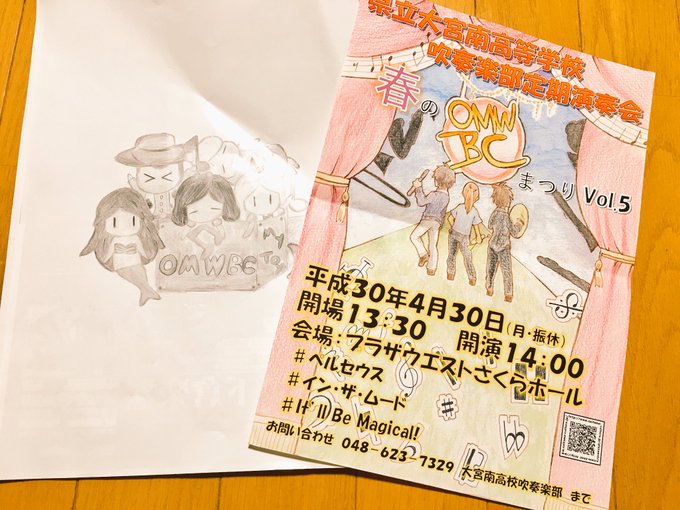 県立大宮南高等学校
吹奏楽部定期演奏会
春の
OMW
BC
まつり Vol.5
平成30年4月30日(月・振休)
開場13:30 開演14:00
会場:プラザウエストさくらホール
#ペルセウス
#イン・ザ・ムード
#It'll Be Magical!
お問い合わせ 048-623-7329 大宮南高校吹奏楽部 まで
OMWBC